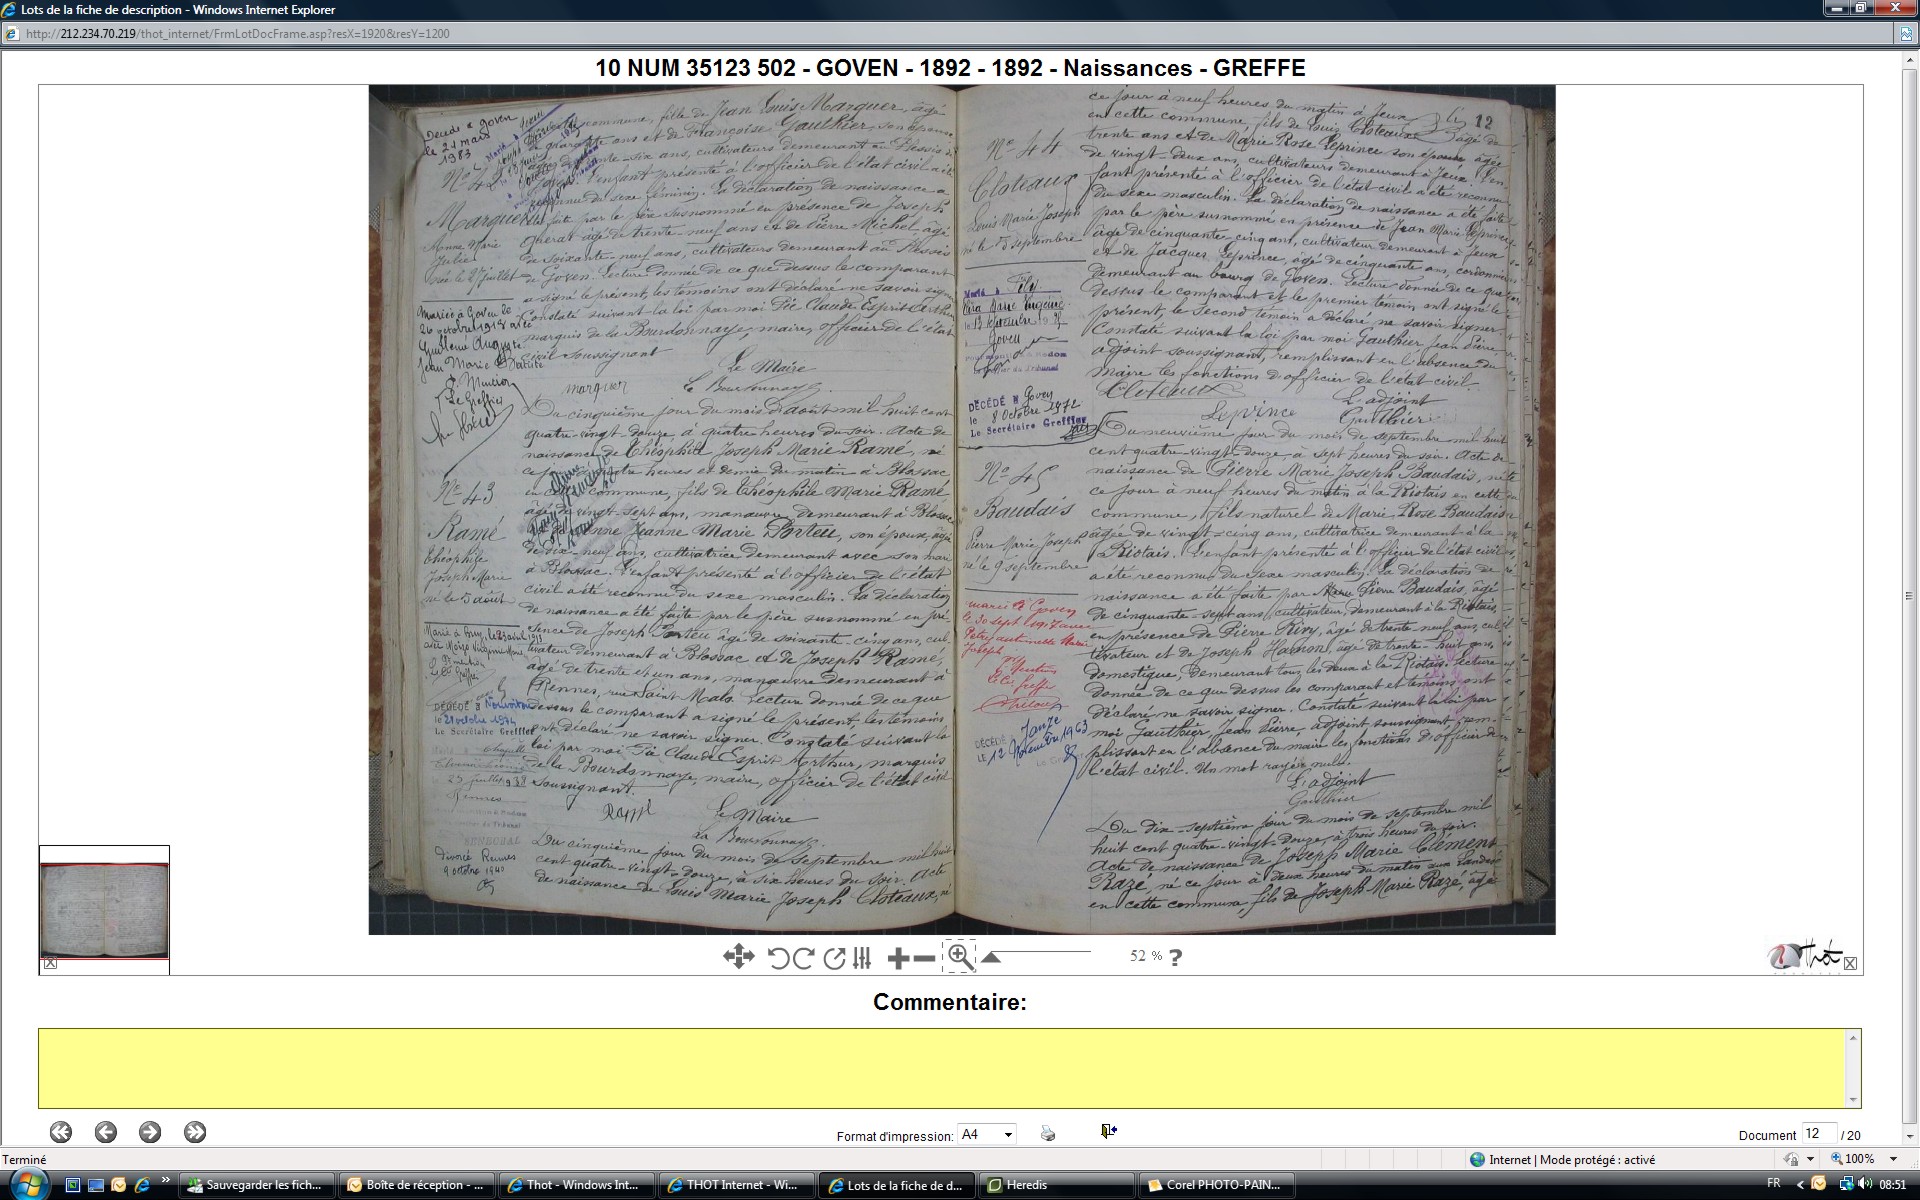 Lots de la fiche de description - Windows Internet Explorer
http://212.234.70.219/thot_internet/FrmLotDocFrame.asp?resX=1920&resY=1200
10 NUM 35123 502 - GOVEN - 1892 - 1892 - Naissances - GREFFE
Décédé à Goven
le 21 mars
1983
commune, fille de Jean Louis Marquer, âgé
quarante ans et de Françoise Gauthier, son épouse
trente-six ans, cultivateurs demeurant au Plessis
l'enfant présenté à l'officier de l'état civil a été
reconnu du sexe féminin. La déclaration de naissance a
été faite par le père susnommé en présence de Joseph
âgé de trente-neuf ans et de Pierre Michel, âgé
de soixante-neuf ans, cultivateurs demeurant au Plessis
de Goven. Lecture donnée de ce que dessus le comparant
a signé le présent, les témoins ont déclaré ne savoir signer
Constaté suivant la loi par moi Pie Claude Esprit Arthur
marquis de la Bourdonnaye, maire, officier de l'état
civil soussignant
Le Maire
marquer
La Bourdonnaye
Marquer
Anne Marie
Julie
née le 27 juillet
Mariée à Goven le
26 octobre avec
Guillaume Auguste
Jean Marie
Le Greffier
Du cinquième jour du mois d'août mil huit cent
quatre-vingt-douze, à quatre heures du soir. Acte de
naissance de Théophile Joseph Marie Ramé, né
ce jour à quatre heures et demie du matin à Blossac
en cette commune, fils de Théophile Marie Ramé
âgé de vingt-sept ans, manœuvre demeurant à Blossac
et de Jeanne Marie Porteu, son épouse, âgée
de dix-neuf ans, cultivatrice demeurant avec son mari
à Blossac. L'enfant présenté à l'officier de l'état
civil a été reconnu du sexe masculin. La déclaration
de naissance a été faite par le père susnommé en pré-
sence de Joseph Porteu âgé de soixante-cinq ans, cul-
tivateur demeurant à Blossac et de Joseph Ramé,
âgé de trente et un ans, manœuvre demeurant à
Rennes, rue Saint Malo. Lecture donnée de ce que
dessus le comparant a signé le présent, les témoins
ont déclaré ne savoir signer. Constaté suivant la
loi par moi Pie Claude Esprit Arthur, marquis
de la Bourdonnaye, maire, officier de l'état civil
soussignant.
Ramé
Le Maire
La Bourdonnaye
No 43
Ramé
Théophile
Joseph Marie
né le 5 août
DÉCÉDÉ à
le 21 octobre 1974
Le Secrétaire Greffier
Divorcé Rennes
9 octobre 1940
Du cinquième jour du mois de septembre mil huit
cent quatre-vingt-douze, à six heures du soir. Acte
de naissance de Louis Marie Joseph Cloteaux, né
12
ce jour à neuf heures du matin à Jeux
en cette commune, fils de Louis Cloteaux âgé de
trente ans et de Marie Rose Leprince son épouse âgée
de vingt-deux ans, cultivateurs demeurant à Jeux. L'en-
fant présenté à l'officier de l'état civil a été reconnu
du sexe masculin. La déclaration de naissance a été faite
par le père susnommé en présence de Jean Marie Leprince
âgé de cinquante-cinq ans, cultivateur demeurant à Jeux
et de Jacques Leprince, âgé de cinquante ans, cordonnier
demeurant au bourg de Goven. Lecture donnée de ce que
dessus le comparant et le premier témoin ont signé le
présent, le second témoin a déclaré ne savoir signer.
Constaté suivant la loi par moi Gauthier Jean Pierre,
adjoint soussignant, remplissant en l'absence du
maire les fonctions d'officier de l'état civil.
Cloteaux
L'adjoint
Leprince
Gauthier
No 44
Cloteaux
Louis Marie Joseph
né le 5 septembre
DÉCÉDÉ à Goven
le 8 Octobre 1972
Le Secrétaire Greffier
Du neuvième jour du mois de septembre mil huit
cent quatre-vingt-douze, à sept heures du soir. Acte de
naissance de Pierre Marie Joseph Baudais, né
ce jour à neuf heures du matin à la Riotais en cette
commune, fils naturel de Marie Rose Baudais
âgée de vingt-cinq ans, cultivatrice demeurant à la
Riotais. L'enfant présenté à l'officier de l'état civil
a été reconnu du sexe masculin. La déclaration de
naissance a été faite par Pierre Baudais, âgé
de cinquante-sept ans, cultivateur, demeurant à la Riotais,
en présence de Pierre Rivy, âgé de trente neuf ans, cul-
tivateur et de Joseph Hamon, âgé de trente-huit ans,
domestique, demeurant tous les deux à la Riotais. Lecture
donnée de ce que dessus les comparant et témoins ont
déclaré ne savoir signer. Constaté suivant la loi par
moi Gauthier, Jean Pierre, adjoint soussignant, rem-
plissant en l'absence du maire les fonctions d'officier de
l'état civil. Un mot rayé nul.
L'adjoint
Gauthier
No 45
Baudais
Pierre Marie Joseph
né le 9 septembre
marié à Goven
le 30 sept
DÉCÉDÉ à Janzé
LE 12 Novembre 1963
Du dix-septième jour du mois de septembre mil
huit cent quatre-vingt-douze, à trois heures du soir.
Acte de naissance de Joseph Marie Clément
Razé, né ce jour à deux heures du matin aux Landes
en cette commune, fils de Joseph Marie Razé, âgé
52 % ?
Thot
Commentaire:
Format d'impression: A4
Document 12 / 20
Terminé
Internet | Mode protégé : activé
100%
Sauvegarder les fich...
Boîte de réception - ...
Thot - Windows Int...
THOT Internet - Wi...
Lots de la fiche de d...
Heredis
Corel PHOTO-PAIN...
FR
08:51